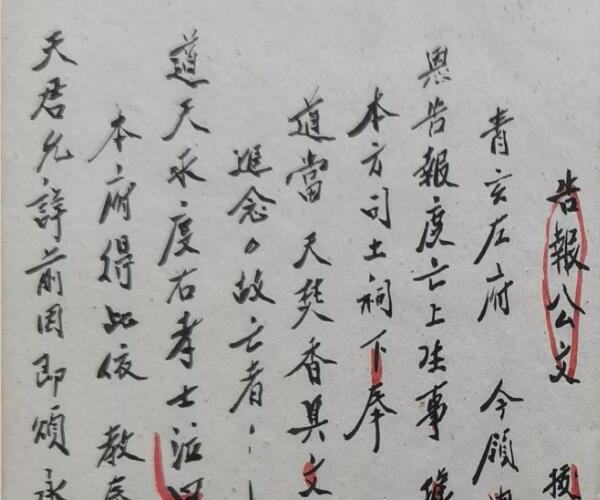 告報公文
青亥左府 今領
恩告報度亡上升事
本方司土祠下奉
道當天焚香具文
進念〇故亡者
道天求度右孝士
本府得此依 教奉
天君允許前因即頒